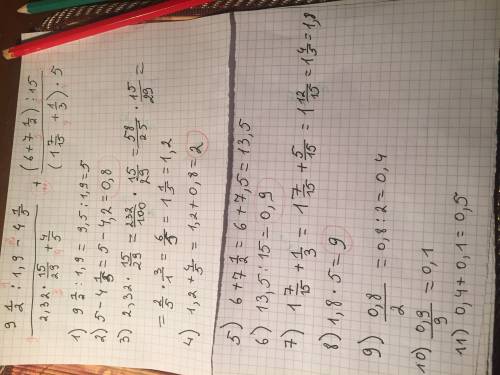 (9 1/2 : 1,9 - 4 1/5) / (2,32 · 15/29 + 4/5) + ((6 + 7 1/2) : 15) / ((1 7/15 + 1/3) · 5)
1) 9 1/2 : 1,9 = 9,5 : 1,9 = 5
2) 5 - 4 1/5 = 5 - 4,2 = 0,8
3) 2,32 · 15/29 = 232/100 · 15/29 = 58/25 · 15/29 =
= 2/5 · 3/1 = 6/5 = 1 1/5 = 1,2
4) 1,2 + 4/5 = 1,2 + 0,8 = 2
5) 6 + 7 1/2 = 6 + 7,5 = 13,5
6) 13,5 : 15 = 0,9
7) 1 7/15 + 1/3 = 1 7/15 + 5/15 = 1 12/15 = 1 4/5 = 1,8
8) 1,8 · 5 = 9
9) 0,8/2 = 0,8 : 2 = 0,4
10) 0,9/9 = 0,1
11) 0,4 + 0,1 = 0,5